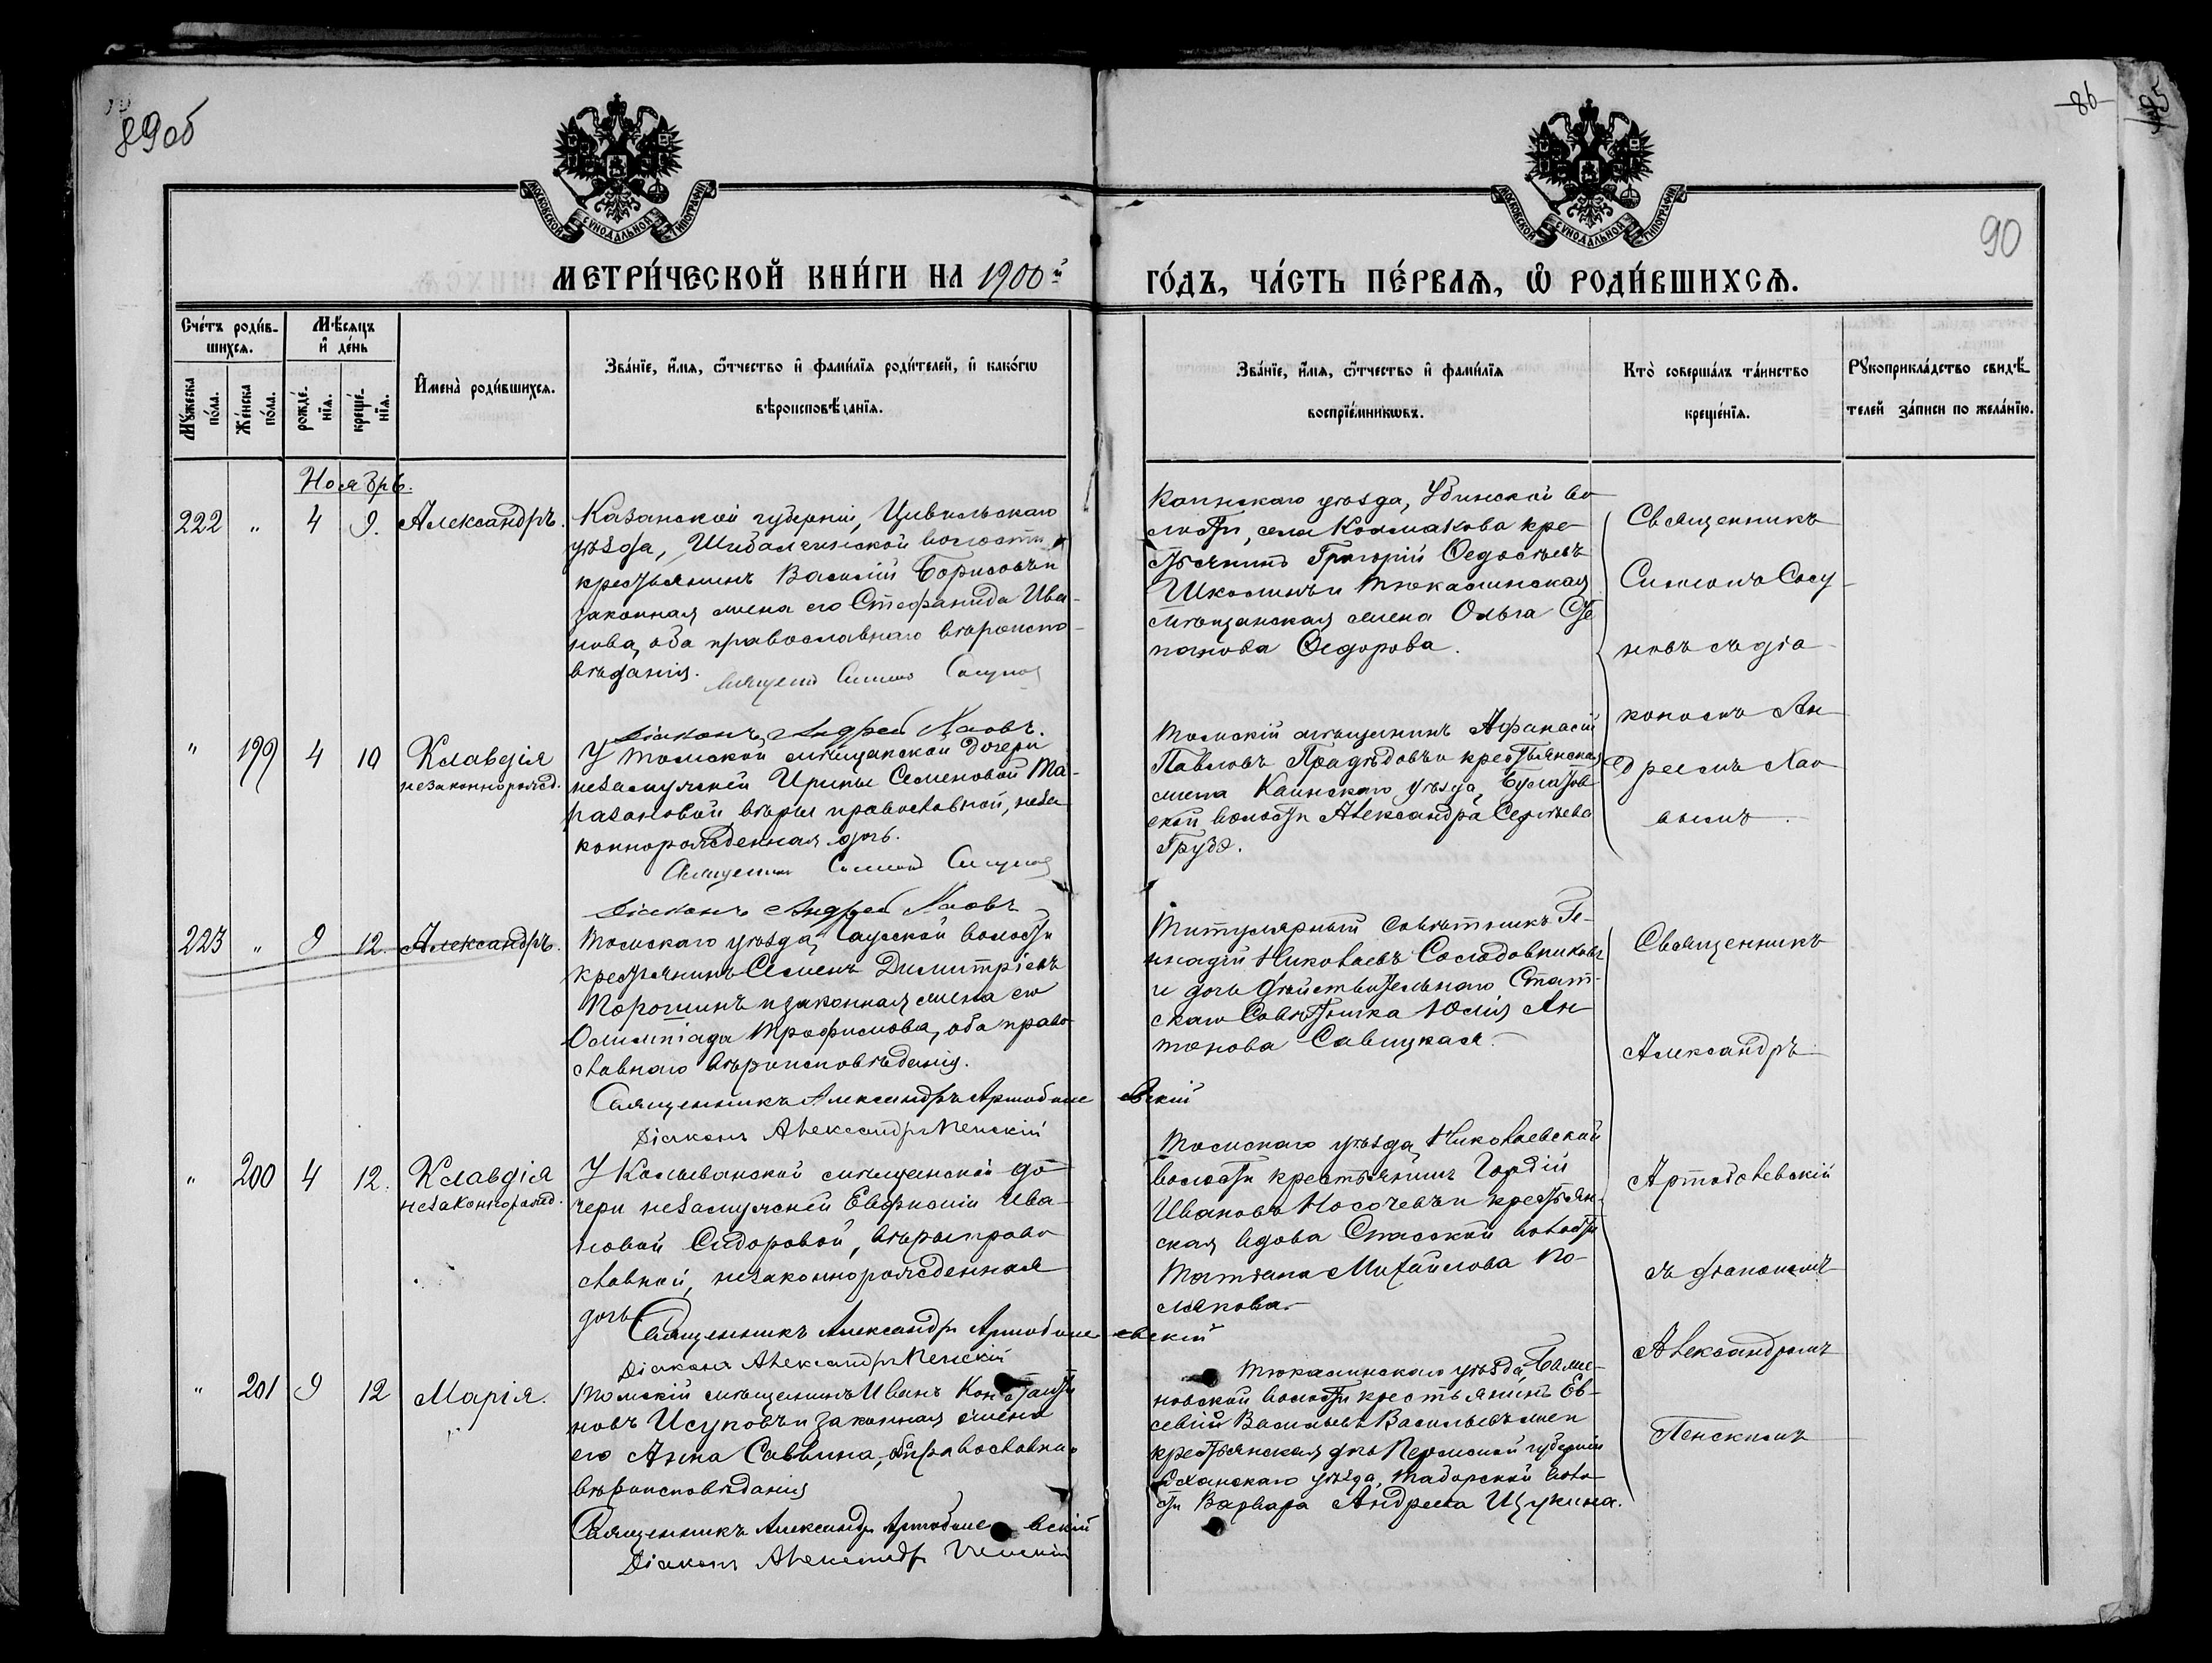 89об
86
85
90
МОСКОВСКОЙ СѴНОДАЛЬНОЙ ТИПОГРАФІИ
МОСКОВСКОЙ СѴНОДАЛЬНОЙ ТИПОГРАФІИ
МЕТРИ́ЧЕСКОЙ КНИ́ГИ НА 1900й
ГО́ДЪ, ЧА́СТЬ ПЕ́РВАѦ, Ѡ҆ РОДИ́ВШИХСѦ.
Сче́тъ роди́в-
шихсѧ.
Мѣ́сѧцъ
и҆ де́нь
Мꙋ́жеска
по́ла.
Же́нска
по́ла.
рожде́-
нїѧ.
креще́-
нїѧ.
И҆мена̀ роди́вшихсѧ.
Зва́нїе, и҆́мѧ, ѻ҆́тчество и҆ фами́лїѧ роди́телей, и҆ како́гѡ
вѣроисповѣ́данїѧ.
Зва́нїе, и҆́мѧ, ѻ҆́тчество и҆ фами́лїѧ
воспрїе́мникѡвъ.
Кто̀ соверша́лъ та́инство
креще́нїѧ.
Рꙋкоприкла́дство свидѣ́-
телей за́писи по жела́нїю.
Ноябрь.
222 " 4 9. Александръ.
Казанской губерніи, Цивильскаго
уѣзда, Шибалгинской волости
крестьянинъ Василій Борисовъ и
законная жена его Стефанида Ива-
нова, оба православнаго вѣроиспо-
вѣданія.
Священникъ Симеонъ Сосуновъ
Діаконъ Андрей Хаовъ.
Каинскаго уѣзда, Убинской во-
лости, села Колмакова кре-
стьянинъ Григорій Ѳедосѣевъ
Школинъ и Тюкалинская
мѣщанская жена Ольга Сте-
панова Ѳедорова.
Священникъ
Симеонъ Сосу-
новъ съ діа-
кономъ Ан-
дреемъ Хао-
вымъ.
" 199 4 10 Клавдія
незаконнорожд.
У Томской мѣщанской дочери
незамужней Ирины Семеновой Та-
разановой вѣры православной, неза-
коннорожденная дочь.
Священникъ Симеонъ Сосуновъ
Діаконъ Андрей Хаовъ
Томскій мѣщанинъ Афанасій
Павловъ Прадѣдовъ и крестьянская
жена Каинскаго уѣзда, Булатов-
ской волости Александра Сергѣева
Грузд.
223 " 9 12. Александръ.
Томскаго уѣзда, Чаусской волости
крестьянинъ Семенъ Димитріевъ
Порошинъ и законная жена его
Олимпіада Трофимова, оба право-
славнаго вѣроисповѣданія.
Священникъ Александръ Артоболевскій
Діаконъ Александръ Пенскій
Титулярный Совѣтникъ Ге-
ннадій Николаевъ Солодовниковъ
и дочь дѣйствительнаго Стат-
скаго Совѣтника Юлія Ан-
тонова Савицкая.
Священникъ
Александръ
Артоболевскій
съ діакономъ
Александромъ
Пенскимъ
" 200 4 12. Клавдія
незаконнорожд.
У Колыванской мѣщанской до-
чери незамужней Евфиміи Ива-
новой Сидоровой, вѣры право-
славной, незаконнорожденная
дочь
Священникъ Александръ Артоболевскій
Діаконъ Александръ Пенскій
Томскаго уѣзда, Николаевской
волости крестьянинъ Гордій
Ивановъ Носочевъ и крестьян-
ская вдова Спасской волости
Татіана Михайлова По-
лякова.
" 201 9 12 Марія.
Томскій мѣщанинъ Иванъ Константи-
новъ Исуповъ и законная жена
его Анна Саввина, оба православнаго
вѣроисповѣданія
Священникъ Александръ Артоболевскій
Діаконъ Александръ Пенскій
Тюкалинскаго уѣзда,
новской волости крестьянинъ Ев-
севій Васильевъ Васильевъ
крестьянская дочь Пермской губерніи
Оханскаго уѣзда, Таборской воло-
сти Варвара Андреева Щукина.